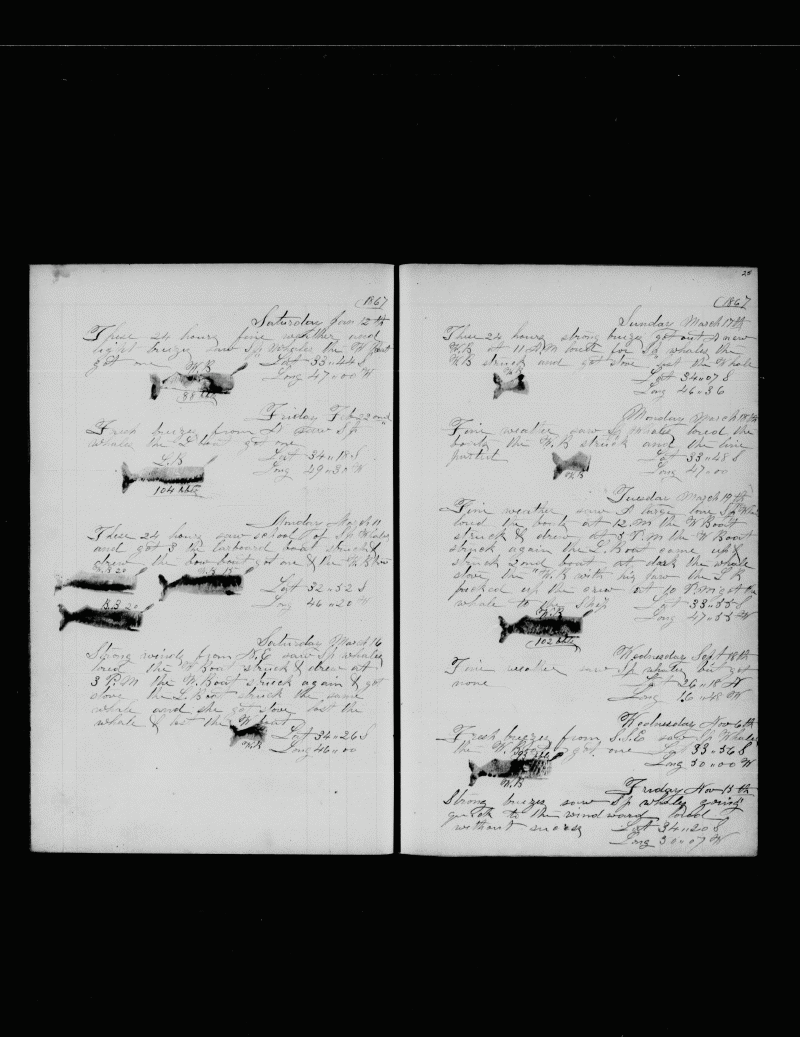 (1867
Saturday Jan 12th
These 24 hours fine weather and
light breeze saw Sp Whales the W Boat
got one W.B Lat 33„44 S
Long 47„00 W
88 bbls
Friday Feb 22nd
Fresh breezes from saw Sp
whales the L boat got one
L.B Lat 34„18 S
Long 49„30 W
104 bbls
Monday March 11
These 24 hours saw school of Sp Whales
and got 3 the larboard boat struck &
drew the bow boat got one & the W.B two
B.B 20 W.B 15
Lat 32„52 S
B.B 20 Long 46„20 W
Saturday March 16
Strong winds from N.E saw Sp whales
lored the W Boat struck & drew at
3 P.M the W. Boat struck again & got
stove the L. Boat struck the same
whale and she got stove lost the
whale & lost the W boat
Lat 34„26 S
W.B Long 46„00
25
(1867
Sunday March 17th
These 24 hours strong breeze got out A new
W.B at 11 A.M lored for Sp whales the
W.B struck and got stove got the Whale
W.B Lat 34„07 S
Long 46„36
Monday March 18th
Fine weather saw Sp Whales lored the
boats the W.B struck and the line
parted Lat 33„48 S
W.B Long 47„00
Tuesday March 19th
Fine weather saw A large lone Sp Whale
lored the boats at 12 M the W Boat
struck & drew at 3 P.M the W Boat
struck again the L. Boat came up &
struck 2nd boat at dark the whale
stove the W.B with his jaw the L B
picked up the crew at 10 P.M got the
whale to Ship Lat 33„55 S
W.B Long 47„58 W
102 bbls
Wednesday Sept 18th
Fine weather saw Sp whales but got
none Lat 26„18 N
Long „48 W
Wednesday Nov 6th
Fresh breezes from S.S.E saw Sp Whales
the W. Boat got one Lat 33„56 S
95 bbls Long 30„00 W
W.B
Friday Nov 15th
Strong breezes saw Sp whales going
quick to the windward lored
without success Lat 34„20 S
Long 30„07 W